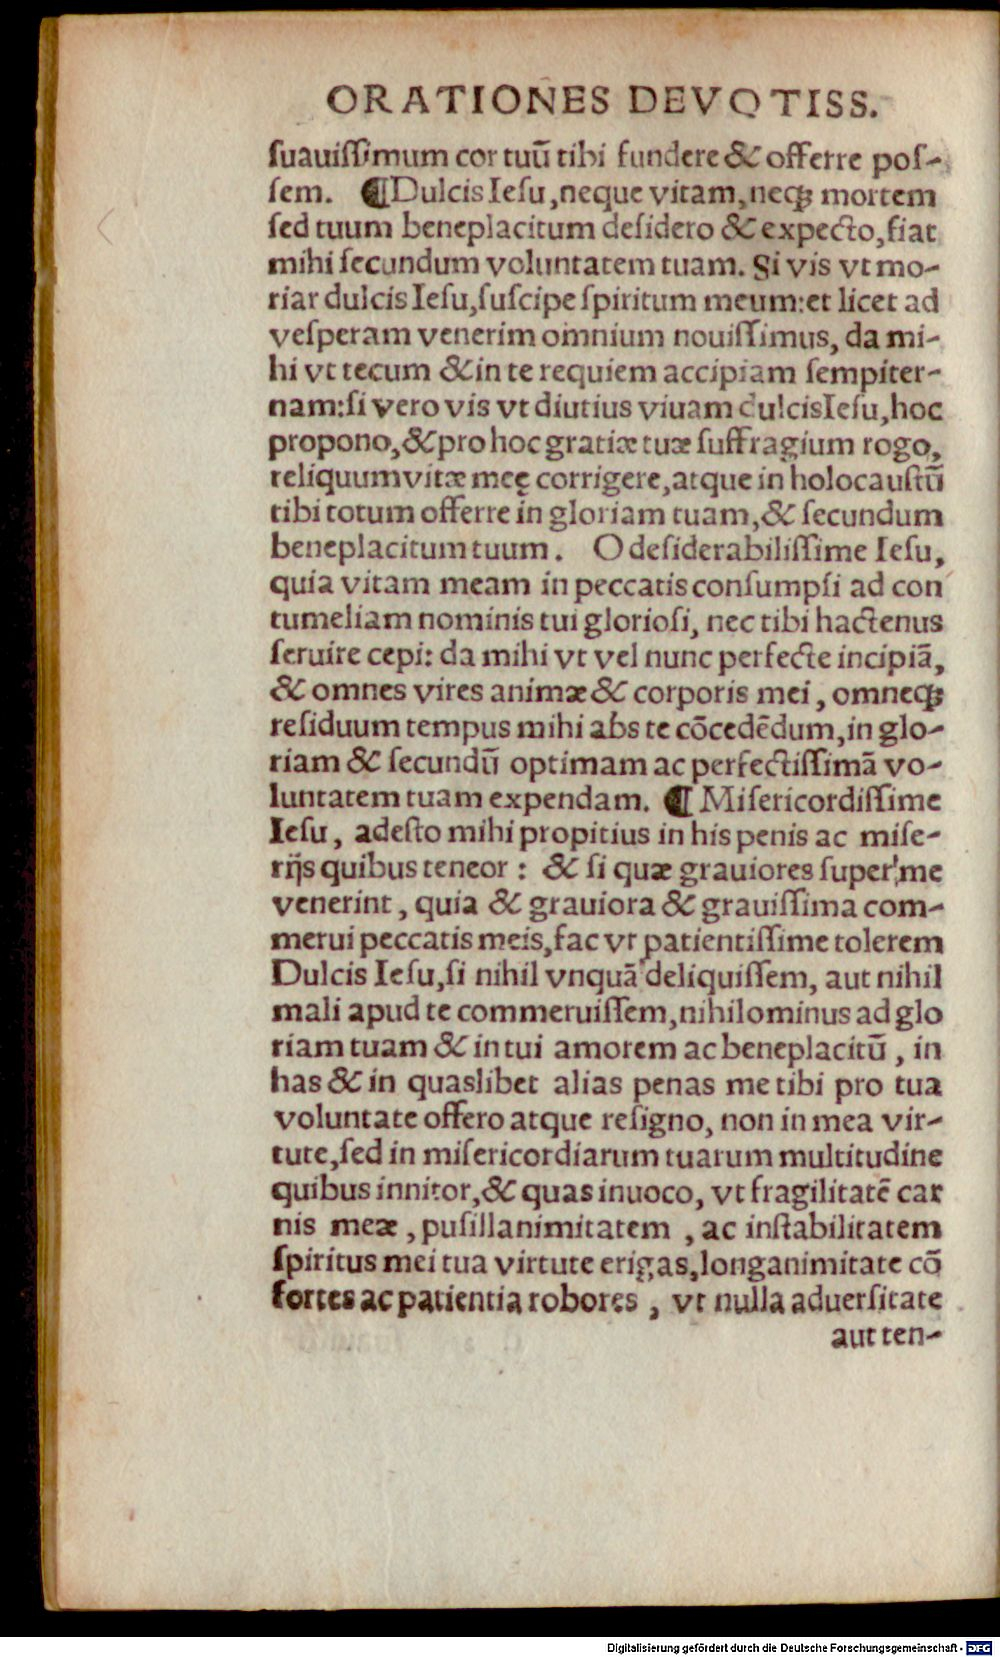 ORATIONES DEVOTISS.
ſuauiſſimum cor tuū tibi fundere & offerre poſ-
ſem. ¶Dulcis Ieſu, neque vitam, neqꝫ mortem
ſed tuum beneplacitum deſidero & expecto, fiat
mihi ſecundum voluntatem tuam. Si vis vt mo-
riar dulcis Ieſu, ſuſcipe ſpiritum meum: et licet ad
veſperam venerim omnium nouiſſimus, da mi-
hi vt tecum & in te requiem accipiam ſempiter-
nam: ſi vero vis vt diutius viuam dulcis Ieſu, hoc
propono, & pro hoc gratiæ tuæ ſuffragium rogo,
reliquum vitæ meę corrigere, atque in holocauſtū
tibi totum offerre in gloriam tuam, & ſecundum
beneplacitum tuum. O deſiderabiliſſime Ieſu,
quia vitam meam in peccatis conſumpſi ad con
tumeliam nominis tui glorioſi, nec tibi hactenus
ſeruire cepi: da mihi vt vel nunc perfecte incipiā,
& omnes vires animæ & corporis mei, omneqꝫ
reſiduum tempus mihi abs te cōcedēdum, in glo-
riam & ſecundū optimam ac perfectiſſimā vo-
luntatem tuam expendam. ¶ Miſericordiſſime
Ieſu, adeſto mihi propitius in his penis ac miſe-
rijs quibus teneor: & ſi quæ grauiores ſuper me
venerint, quia & grauiora & grauiſſima com-
merui peccatis meis, fac vt patientiſſime tolerem
Dulcis Ieſu, ſi nihil vnquā deliquiſſem, aut nihil
mali apud te commeruiſſem, nihilominus ad glo
riam tuam & in tui amorem ac beneplacitū, in
has & in quaslibet alias penas me tibi pro tua
voluntate offero atque reſigno, non in mea vir-
tute, ſed in miſericordiarum tuarum multitudine
quibus innitor, & quas inuoco, vt fragilitatē car
nis meæ, puſillanimitatem, ac inſtabilitatem
ſpiritus mei tua virtute erigas, longanimitate cō
fortes ac patientia robores, vt nulla aduerſitate
aut ten-
Digitalisierung gefördert durch die Deutsche Forschungsgemeinschaft - DFG